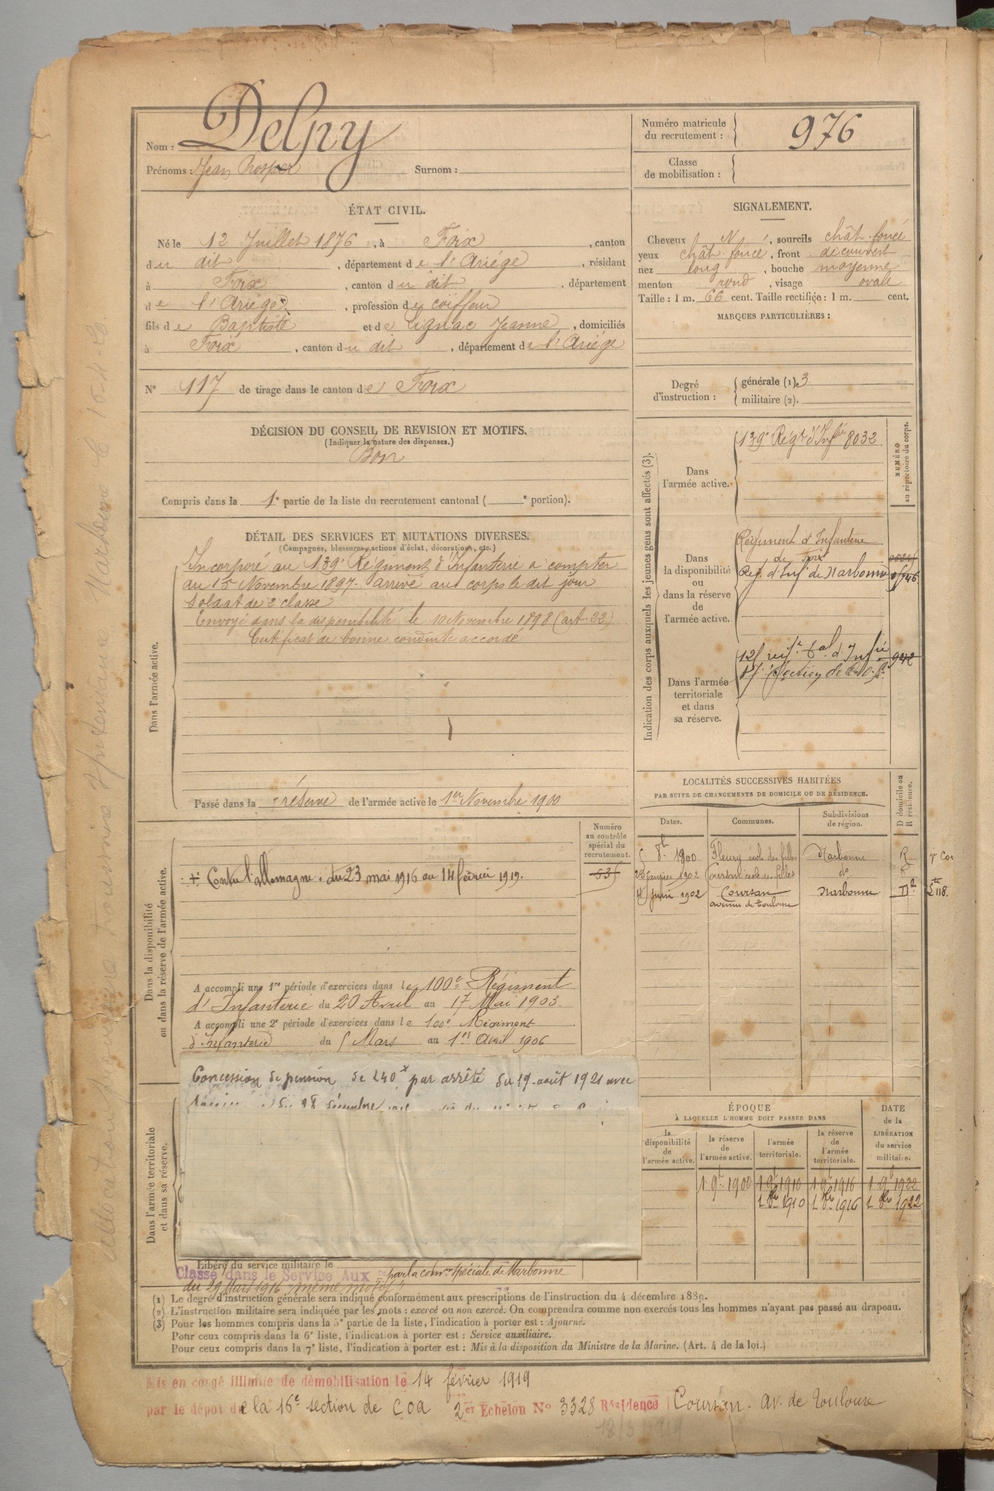 Nom : Delpy
Prénoms : Jean Prosper Surnom :
Numéro matricule du recrutement : 976
Classe de mobilisation :
ÉTAT CIVIL.
Né le 12 Juillet 1876, à Foix, canton
du dit, département de l'Ariège, résidant
à Foix, canton du dit, département
de l'Ariège, profession de coiffeur
fils de Baptiste et de Jeanne, domiciliés
à Foix, canton du dit, département de l'Ariège
N° 117 de tirage dans le canton de Foix
SIGNALEMENT.
Cheveux N, sourcils chât. foncé
yeux chât. foncé, front découvert
nez long, bouche moyenne
menton rond, visage ovale
Taille : 1 m. 66 cent. Taille rectifiée : 1 m. cent.
MARQUES PARTICULIÈRES :
Degré d'instruction : générale (1) 3
militaire (2).
DÉCISION DU CONSEIL DE REVISION ET MOTIFS.
(Indiquer la nature des dispenses.)
Bon
Compris dans la 1e partie de la liste du recrutement cantonal ( e portion).
DÉTAIL DES SERVICES ET MUTATIONS DIVERSES.
(Campagnes, blessures, actions d'éclat, décorations, etc.)
Dans l'armée active.
Incorporé au 139e Régiment d'Infanterie à compter
du 15 Novembre 1897. arrivé au corps le dit jour
Soldat de 2e classe
Envoyé dans la disponibilité le 10 Novembre 1898 (art. 22)
Certificat de bonne conduite accordé
Passé dans la réserve de l'armée active le 1er Novembre 1900
Indication des corps auxquels les jeunes gens sont affectés (3).
NUMÉRO au répertoire du corps.
Dans l'armée active.
139e Régt d'Infie 8032
Dans la disponibilité ou dans la réserve de l'armée active.
Régiment d'Infanterie
de Foix
Rég. d'Infie de Narbonne
Dans l'armée territoriale et dans sa réserve.
LOCALITÉS SUCCESSIVES HABITÉES
PAR SUITE DE CHANGEMENTS DE DOMICILE OU DE RÉSIDENCE.
Dates. Communes. Subdivisions de région. D domicile ou R résidence.
1900 Fleury Narbonne R
janvier 1902 Coursan do R
juin 1902 Coursan avenue de Toulouse Narbonne D
Dans la disponibilité ou dans la réserve de l'armée active.
Numéro au contrôle spécial du recrutement.
+ Contre l'Allemagne : du 23 mai 1916 au 14 février 1919.
A accompli une 1re période d'exercices dans le 100e Régiment
d'Infanterie du 20 Avril au 17 Mai 1903.
A accompli une 2e période d'exercices dans le 100e Régiment
d'Infanterie du 5 Mars au 1er Avril 1906
Concession de pension de 240f par arrêté du 19 août 1921 avec
Dans l'armée territoriale et dans sa réserve.
ÉPOQUE
À LAQUELLE L'HOMME DOIT PASSER DANS
la disponibilité de l'armée active.
la réserve de l'armée active.
l'armée territoriale.
la réserve de l'armée territoriale.
DATE de la LIBÉRATION du service militaire.
1 9bre 1900 1 9bre 1910 1 9bre 1916 1 9bre 1922
1 8bre 1910 1 8bre 1916 1 8bre 1922
Libéré du service militaire le
Classé dans le Service Aux. par la comon spéciale de Narbonne
du 29 Mars 1916 même motif.
(1) Le degré d'instruction générale sera indiqué conformément aux prescriptions de l'instruction du 4 décembre 1889.
(2) L'instruction militaire sera indiquée par les mots : exercé ou non exercé. On comprendra comme non exercés tous les hommes n'ayant pas passé au drapeau.
(3) Pour les hommes compris dans la 5e partie de la liste, l'indication à porter est : Ajourné.
Pour ceux compris dans la 6e liste, l'indication à porter est : Service auxiliaire.
Pour ceux compris dans la 7e liste, l'indication à porter est : Mis à la disposition du Ministre de la Marine. (Art. 4 de la loi.)
Mis en congé illimité de démobilisation le 14 février 1919
par le dépôt de la 16e section de COA 2e Echelon N° 3328 Résidence Coursan. av. de Toulouse